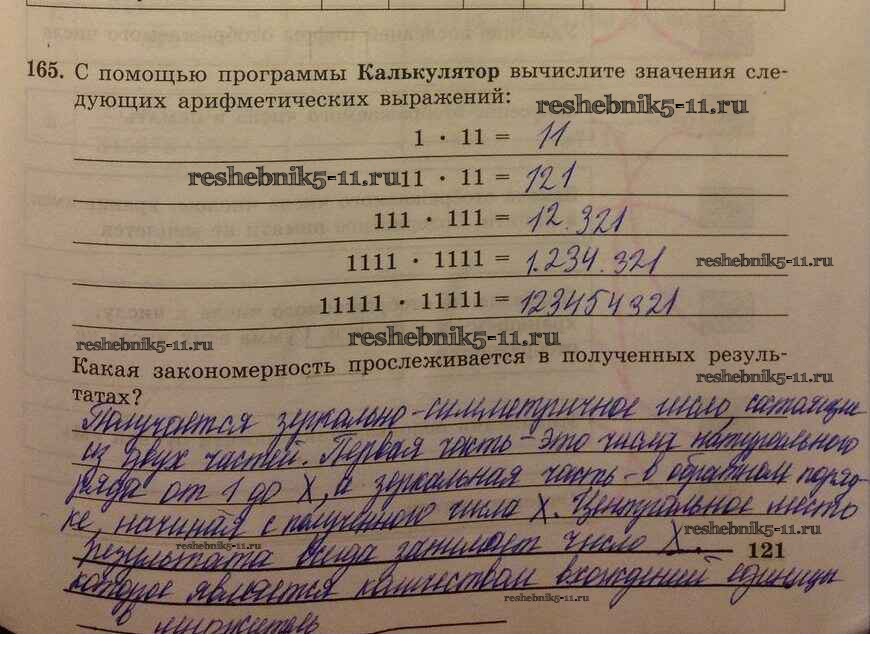 165. С помощью программы Калькулятор вычислите значения сле-
дующих арифметических выражений:
reshebnik5-11.ru
1 · 11 = 11
reshebnik5-11.ru
11 · 11 = 121
111 · 111 = 12.321
1111 · 1111 = 1.234.321
reshebnik5-11.ru
11111 · 11111 = 123454321
reshebnik5-11.ru
reshebnik5-11.ru
Какая закономерность прослеживается в полученных резуль-
татах?
reshebnik5-11.ru
Получается зеркально-симметричное число, состоящие
из двух частей. Первая часть - это числа натурального
ряда от 1 до X, а зеркальная часть - в обратном поряд-
ке, начиная с полученного числа X. Центральное место
reshebnik5-11.ru
результата всегда занимает число X,
reshebnik5-11.ru
121
которое является количеством вхождений единицы
reshebnik5-11.ru
в множитель